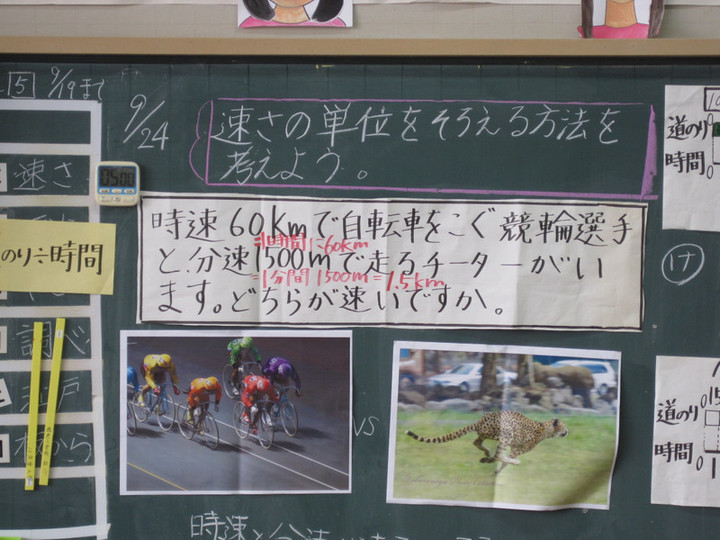 5 9/19まで
9/24
速さの単位をそろえる方法を
考えよう。
05:00
速さ
のり÷時間
調べ
江戸
から
時速60kmで自転車をこぐ競輪選手
=1時間:60km
と分速1500mで走るチーターがい
=1分間 1500m=1.5km
ます。どちらが速いですか。
VS
道のり
時間
け
道のり
時間
時速と分速